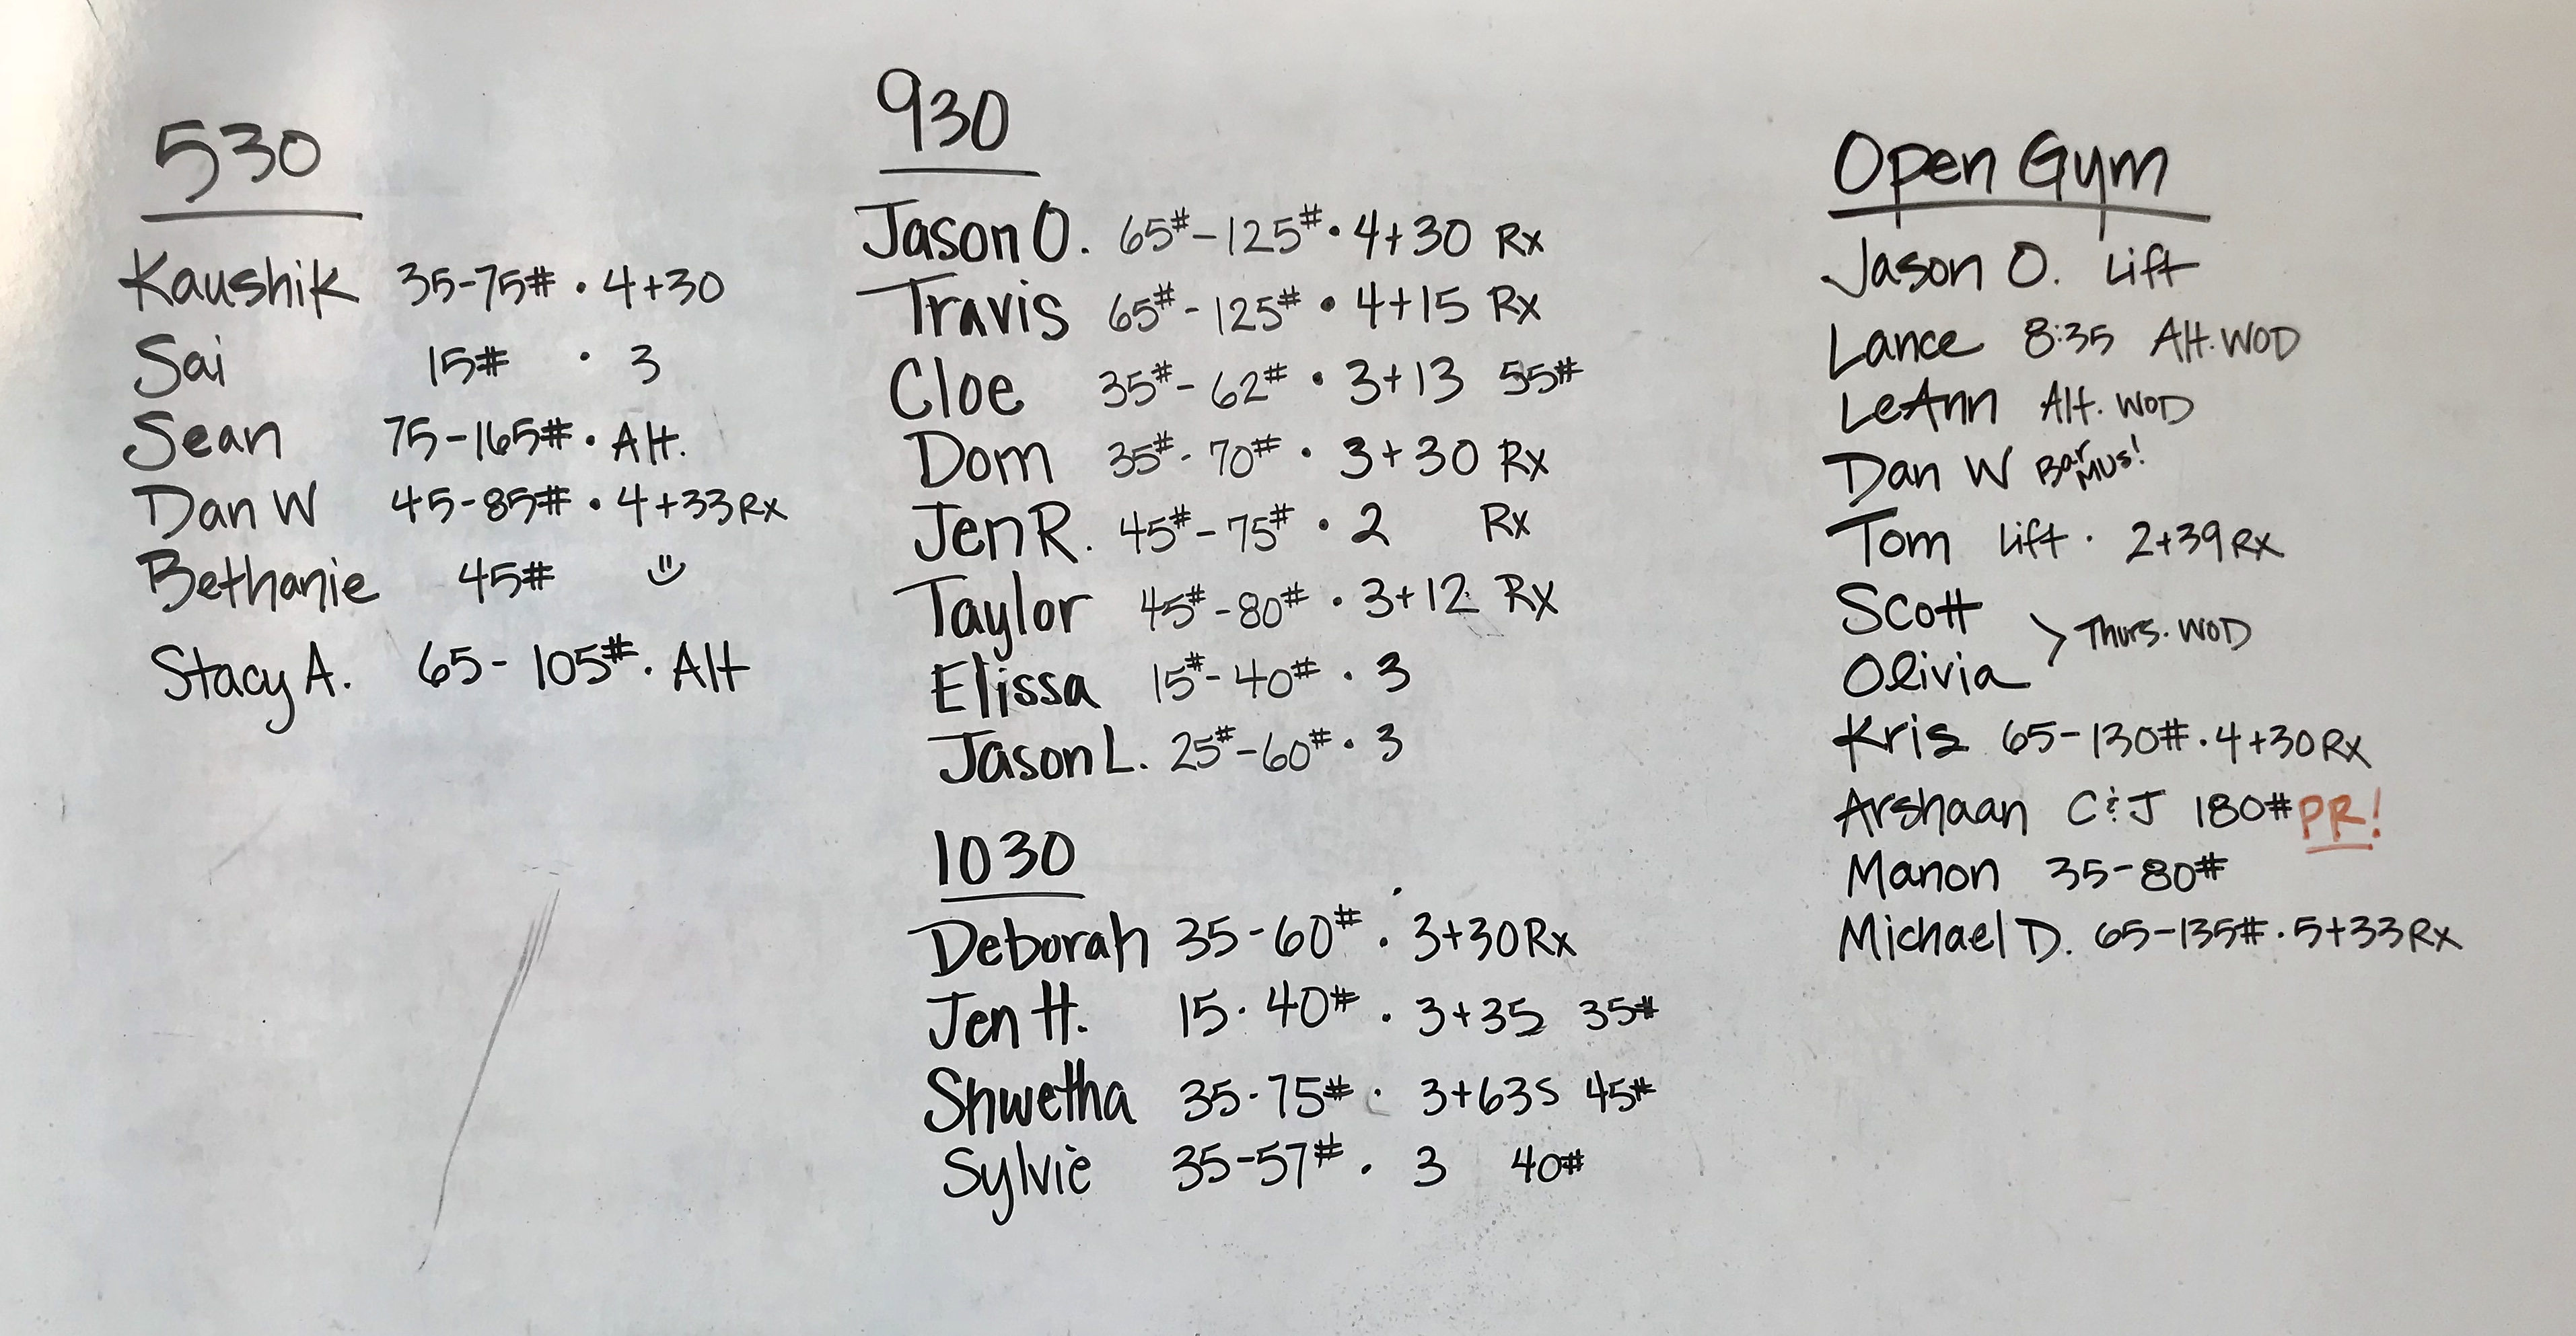 530
Kaushik 35-75# • 4+30
Sai 15# • 3
Sean 75-165# • Alt.
Dan W 45-85# • 4+33 Rx
Bethanie 45#
Stacy A. 65-105# • Alt
930
Jason O. 65#-125# • 4+30 Rx
Travis 65#-125# • 4+15 Rx
Cloe 35#-62# • 3+13 55#
Dom 35#-70# • 3+30 Rx
Jen R. 45#-75# • 2 Rx
Taylor 45#-80# • 3+12 Rx
Elissa 15#-40# • 3
Jason L. 25#-60# • 3
1030
Deborah 35-60# • 3+30 Rx
Jen H. 15-40# • 3+35 35#
Shwetha 35-75# • 3+63S 45#
Sylvie 35-57# • 3 40#
Open Gym
Jason O. Lift
Lance 8:35 Alt. WOD
LeAnn Alt. WOD
Dan W Bar MUs!
Tom Lift • 2+39 Rx
Scott
> Thurs. WOD
Olivia
Kris 65-130# • 4+30 Rx
Arshaan C&J 180# PR!
Manon 35-80#
Michael D. 65-135# • 5+33 Rx